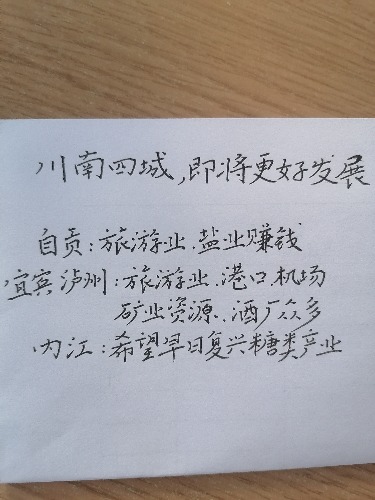 川南四城,即将更好发展
自贡:旅游业.盐业赚钱
宜宾泸州:旅游业.港口.机场
矿业资源.酒厂众多
内江:希望早日复兴糖类产业